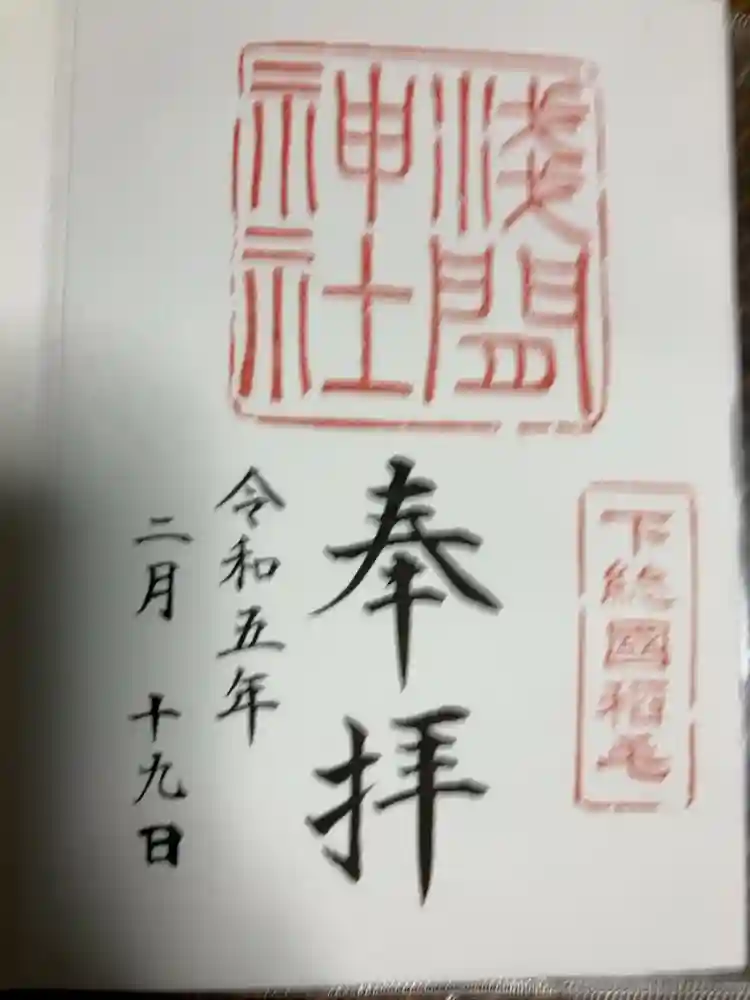 下総國稲毛
淺間
神社
奉拝
令和五年
二月 十九日